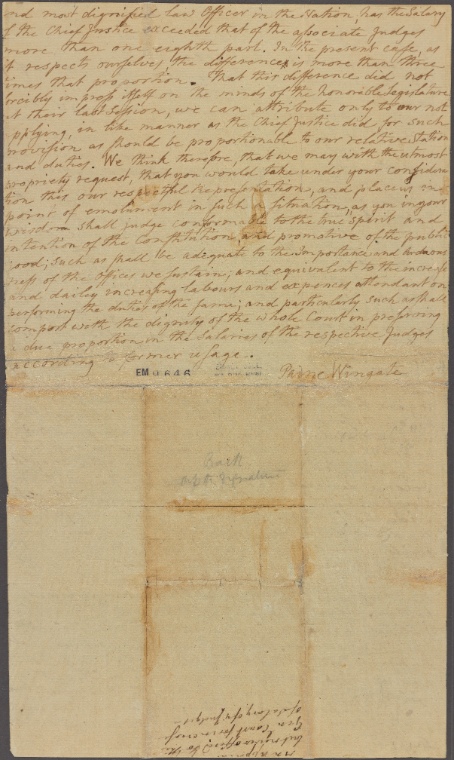 and most dignified law Officer in the Nation, has the Salary
of the Chief Justice exceeded that of the associate Judges
more than one eighth part. In the present case, as
it respects ourselves, the difference is more than three
times that proportion. That this difference did not
forcibly impress itself on the minds of the Honorable Legislature
at their last Session, we can attribute only to our not
applying, in like manner as the Chief Justice did for such
provision as should be proportionable to our relative Station
and duties. We think therefore, that we may with the utmost
propriety request, that you would take under your considera
tion this our respectful Representation, and place us in
point of emolument in such a situation, as you in your
wisdom shall judge conformable to the true Spirit and
intention of the Constitution, and promotive of the public
good; such as shall be adequate to the importance and
of the offices we sustain; and equivalent to the increase
and daily increasing labours and expences attendant on
performing the duties of the same; and particularly such as shall
comport with the dignity of the whole Court in preserving
a due proportion in the Salaries of the respective Judges
according to former usage.
EM 9646
Paine Wingate
Back